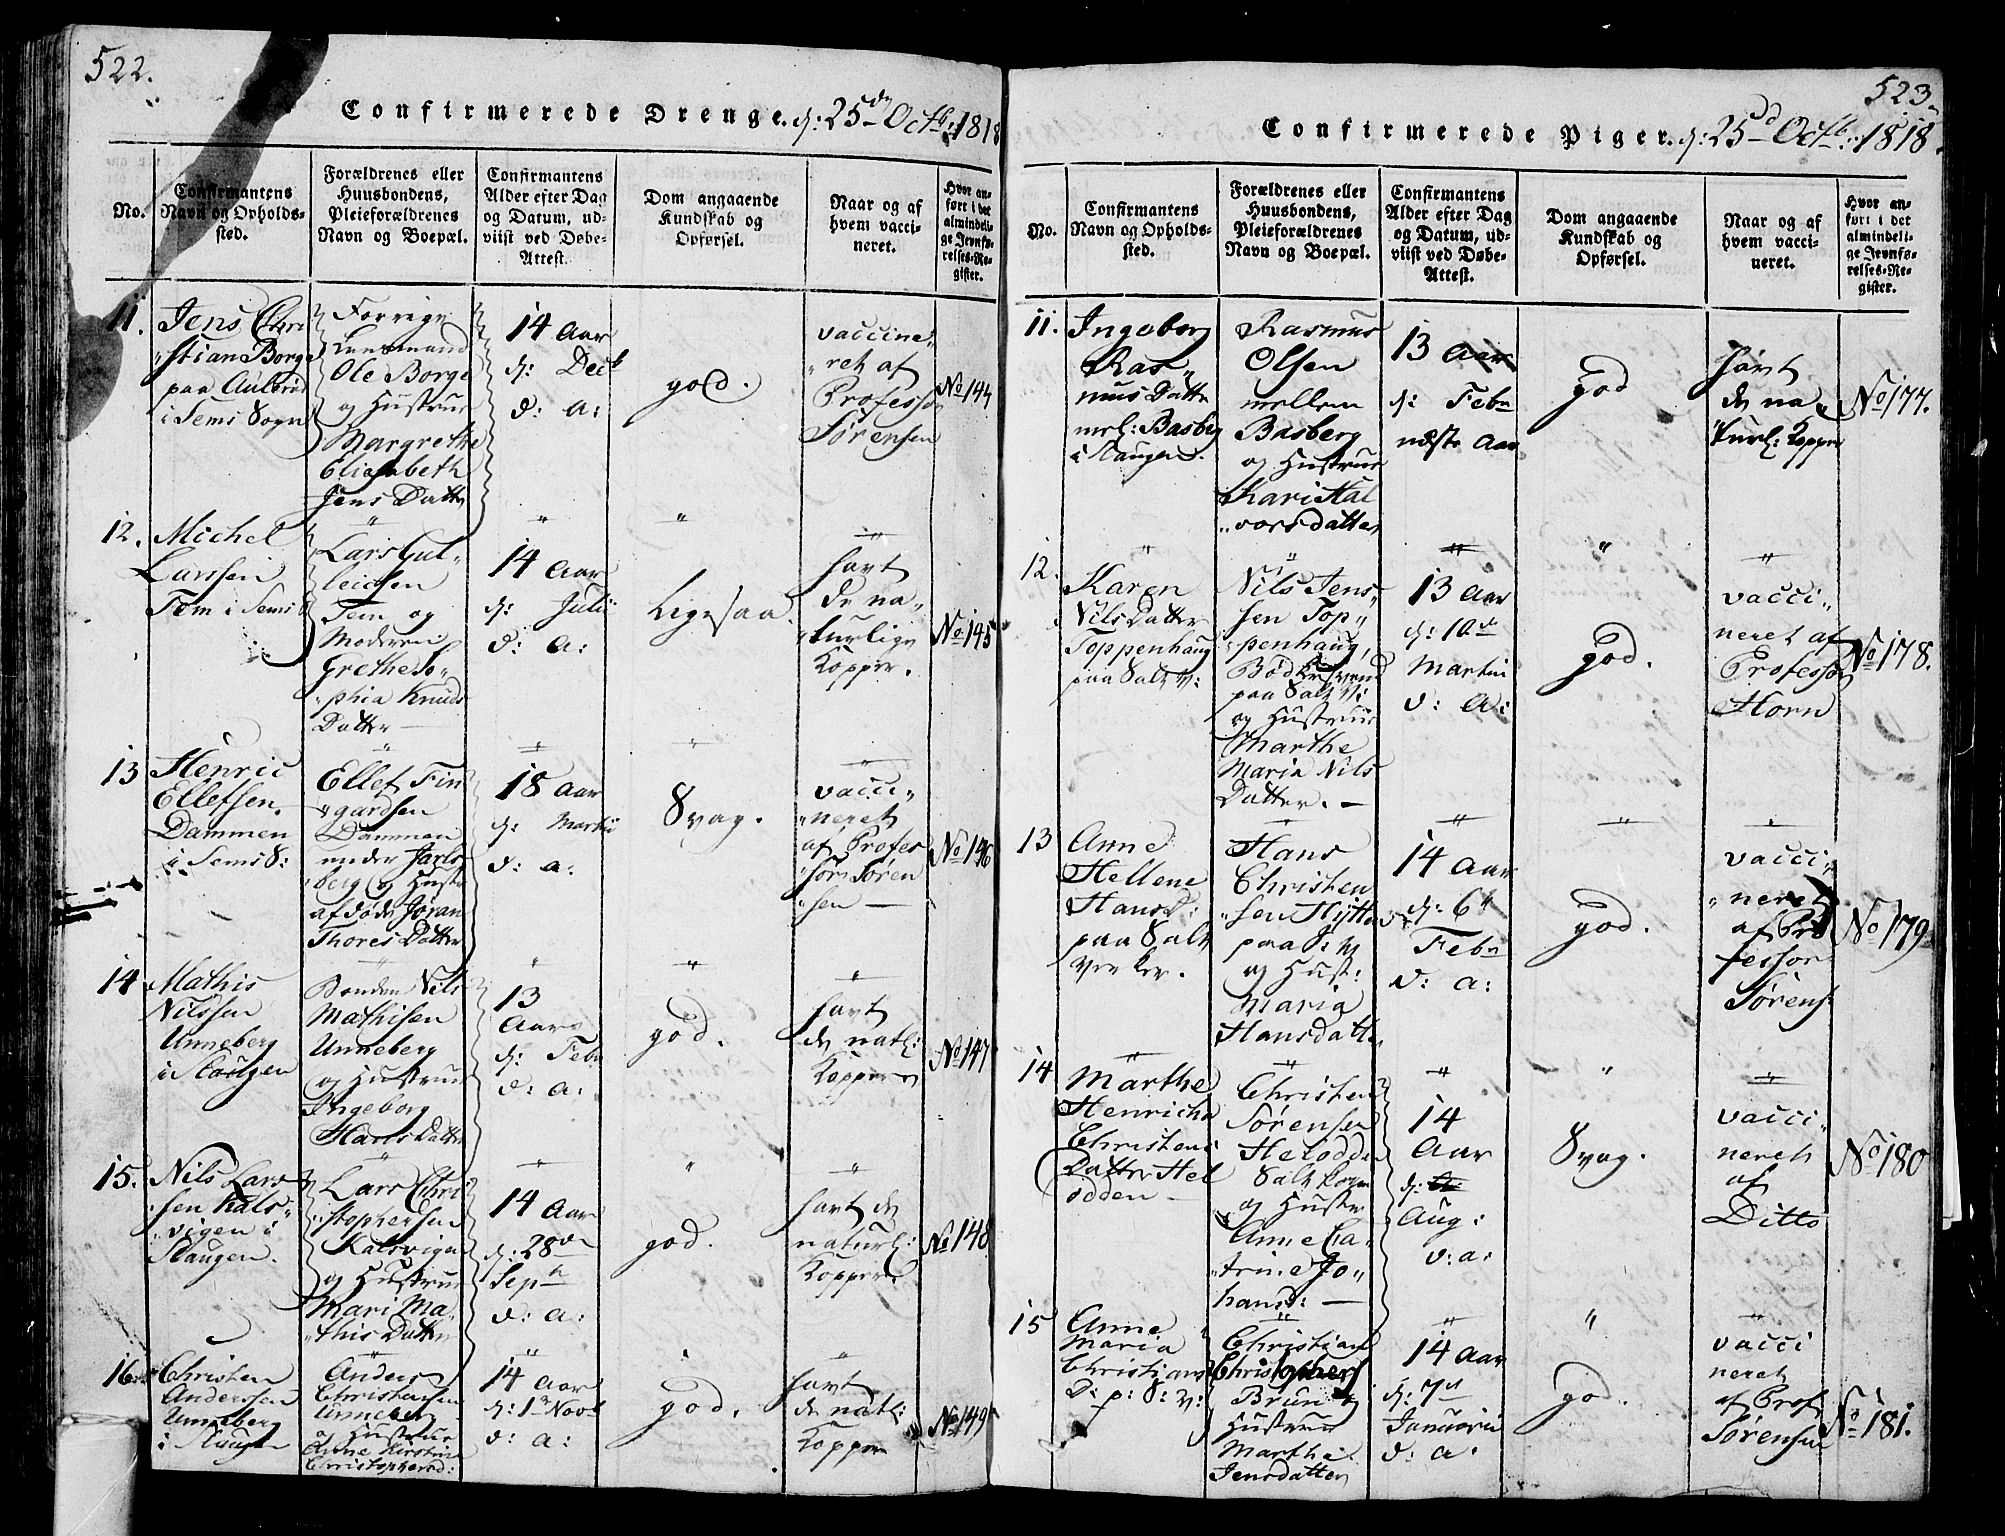 522.
Confirmerede Drenge. d: 25de Octb: 1818
No.
Confirmantens
Navn og Opholds-
sted.
Forældrenes eller
Huusbondens,
Pleieforældrenes
Navn og Boepæl.
Confirmantens
Alder efter Dag
og Datum, ud-
viist ved Døbe-
Attest.
Dom angaaende
Kundskab og
Opførsel.
Naar og af
hvem vacci-
neret.
Hvor an-
ført i det
almindeli-
ge Jevnfø-
relses-Re-
gister.
11.
Jens Chri
"stian Borge
paa Aulerød
i Sems Sogn
Forrige
Lensmand
Ole Borge
og Hustrue
Margrethe
Elisabeth
Jens Datter
14 Aar
d: Decb
d: a:
god.
vaccine,
"ret af
Professor
Sørensen
No 144
12.
Michel
Larssen
Tem i Sems S
Lars Gul,
leichsen
Tem og
Moderen
Grethe So,
"phia Knuds
Datter
14 Aar
d: Julii
d: a:
Ligesaa.
havt
de na,
"turlige
Kopper.
No 145
13
Henric
Ellefsen
Dammen
i Sems S:
Ellef Fin
"gardsen
Dammen
under Jarls
berg og Hustr
afdøde Joran
Thores Datter
18 Aar
d: Martii
d: a:
Svag.
vacci,
"neret
af Profes
sor Søren
"sen
No 146
14
Mathis
Nilssen
Unneberg
i Slaugen
Bonden Nils
Mathisen
Unneberg
og Hustrue
Ingeborg
Hans Datter
13
Aar
d: Febr
d: a:
god.
havt
de natl:
Kopper
No 147
15.
Nils Lars
"sen Kals,
"vigen i
Slaugen.
Lars Chri
"stophersen
Kalsvigen
og Hustrue
Mari Ma,
"this Datter
14 Aar
d: 28de
Septb
d: a:
god.
havt de
naturl:
Kopper.
No 148
16
Christen
Anderssen
Unneberg
i Slaugen
Anders
Christensen
Unneberg
og Hustrue
Anne Kirstine
Christophersd:
14 Aar
d: 1ste Novb
d: a:
god.
havt
de natl:
Kopper
No 149
523.
Confirmerede Piger. d: 25de Octb: 1818.
No.
Confirmantens
Navn og Opholds-
sted.
Forældrenes eller
Huusbondens,
Pleieforældrenes
Navn og Boepæl.
Confirmantens
Alder efter Dag
og Datum, ud-
viist ved Døbe-
Attest.
Dom angaaende
Kundskab og
Opførsel.
Naar og af
hvem vacci-
neret.
Hvor an-
ført i det
almindeli-
ge Jevnfø-
relses-Re-
gister.
11.
Ingeborg
Ras,
mus Datter
mel: Basberg
i Slaugen.
Rasmus
Olsen
mellem
Basberg
og Hustrue
Kari Hal
"vorsdatter
13 Aar
d: Febr
næste Aar
god
havt
de na
"turl: Kopper
No 177.
12.
Karen
Nils Datter
Toppenhaug
paa Salt V:
Nils Jens,
sen Top,
"penhaug,
Bødkersvend
paa Salt V:
og Hustrue
Marthe
Maria Nils
Datter.
13 Aar
d: 10de
Martii
d: a:
god.
vacci,
neret af
Professor
Horn
No 178.
13
Anne
Hellene
Hansd:
paa Salt
Verket.
Hans
Christen
"sen Hytten
paa S: V
og Hust:
Maria
Hansdatter
14 Aar
d: 6te
Febr
d: a:
god.
vacci,
"neret
af Pro
fessor
Sørens:
No 179
14
Marthe
Henricha
Christens
Datter Hel
odden
Christen
Sørensen
Helodden
og Hustr
Anne Ca
"trine Jo,
hansd:
14
Aar
d:
Aug:
d: a:
Svag.
vacci,
neret
af
Ditto
No 180
15
Anne
Maria
Christians
D: p: S: V:
Christian
Christophers
Brun og
Hustrue
Marthe
Jensdatter
14 Aar
d: 7de
Januarii
d: a
god.
vacci
neret
af Prof
Sørensen
No 181.